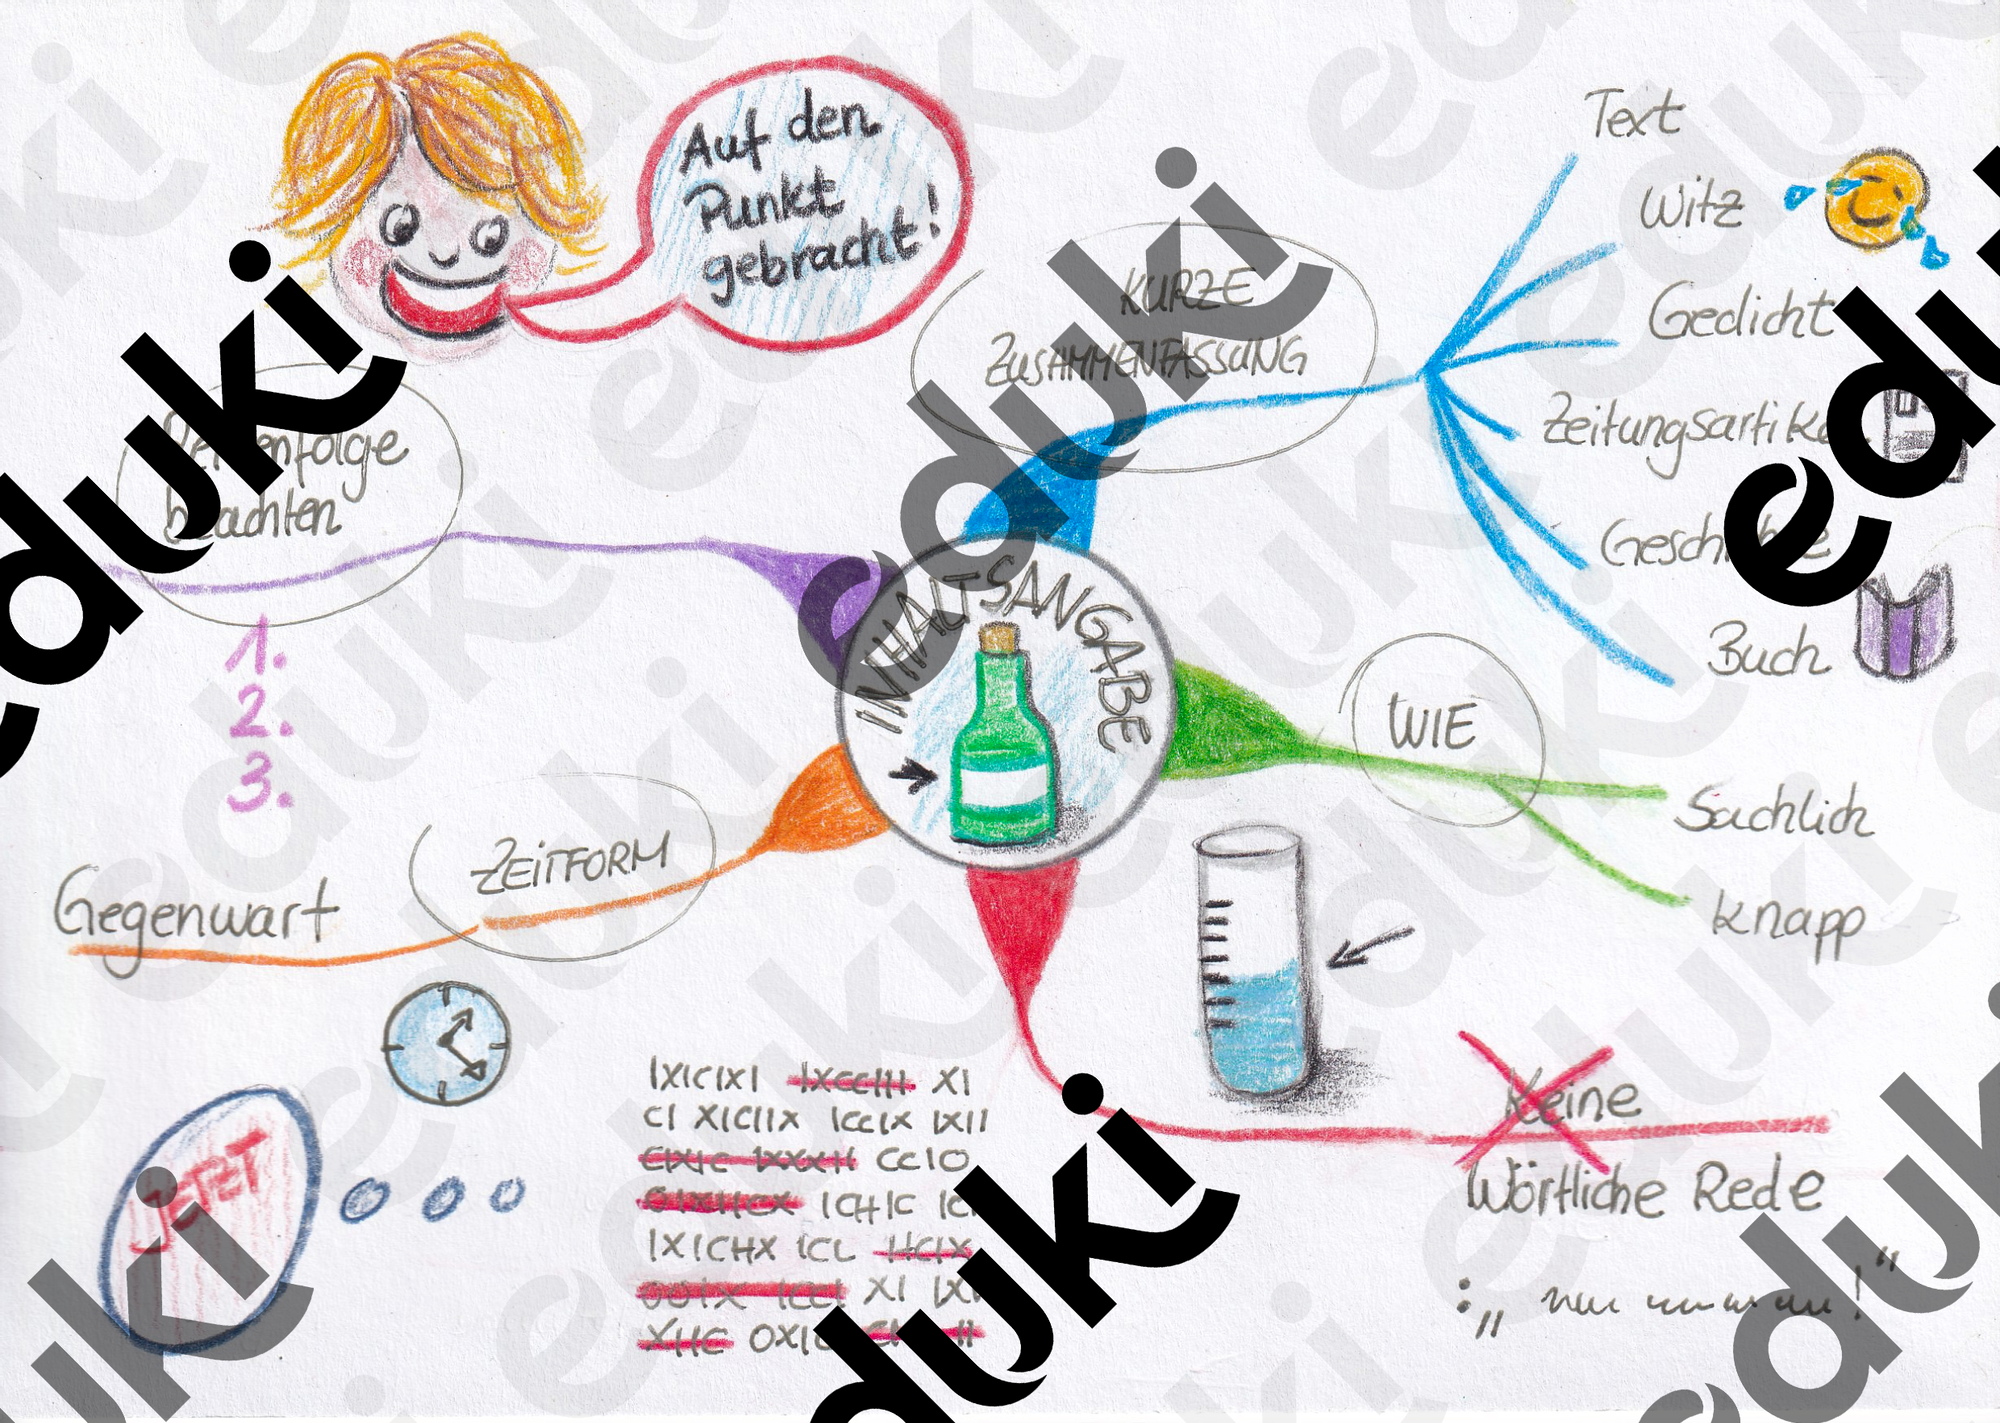 Auf den
Punkt
gebracht!
KURZE
ZUSAMMENFASSUNG
Text
Witz
Gedicht
Zeitungsartikel
Geschichte
Buch
Reihenfolge
beachten
1.
2.
3.
INHALTSANGABE
WIE
Sachlich
knapp
ZEITFORM
Gegenwart
JETZT
Keine
Wörtliche Rede
eduki
eduki
eduki
eduki
eduki